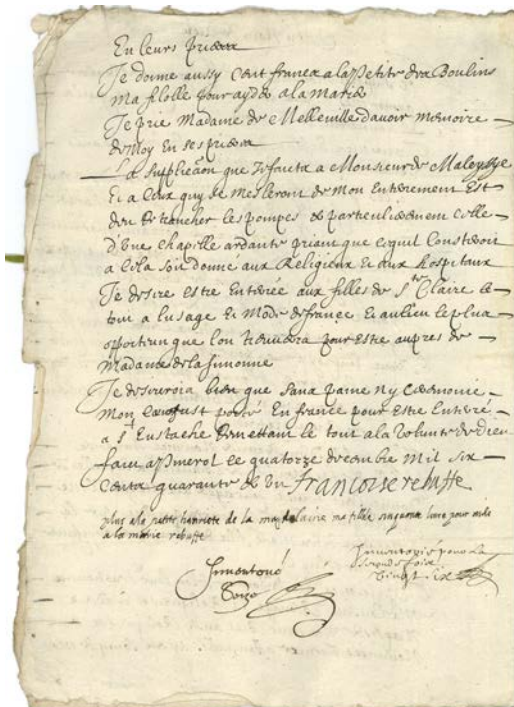 En leurs prieres
Je donne aussy Cent francx a la petite des Boulins
Ma filolle pour ayder a la marier
Je prie Madame de Melleville davoir memoire
de Moy En ses prieres
La supplicaon que Je faicts a Monsieur de
Et a Ceux quy se mesleront de Mon Enterrement Est
den Retrancher les pompes et particulierement Celle
d'une Chapelle ardante priant que ce qui Cousteroit
a Cela Soit donné aux Religieux Et aux hospitaux
Je desire Estre Enterree aux filles de Ste Claire le
tout a lusage Et Mode de france Et au lieu le plus
oportun que lon trouvera pour Estre aupres de
Madame de la
Je desirerois bien que Sans pame ny Ceremonie
Mon Corps fust porté En france pour Estre Enterré
a St Eustache Remettant le tout a la Volunte de dieu
faict a Pinerol le quatorze decembre Mil six
Cents quarante et Un francoise rebuffe
plus a la petite henriete de la magdelaine ma fillole sinquante livre pour aider
a la marier rebuffe
Inventorié
Seize
Inventorié pour la
Seconde foix
Vingt Six